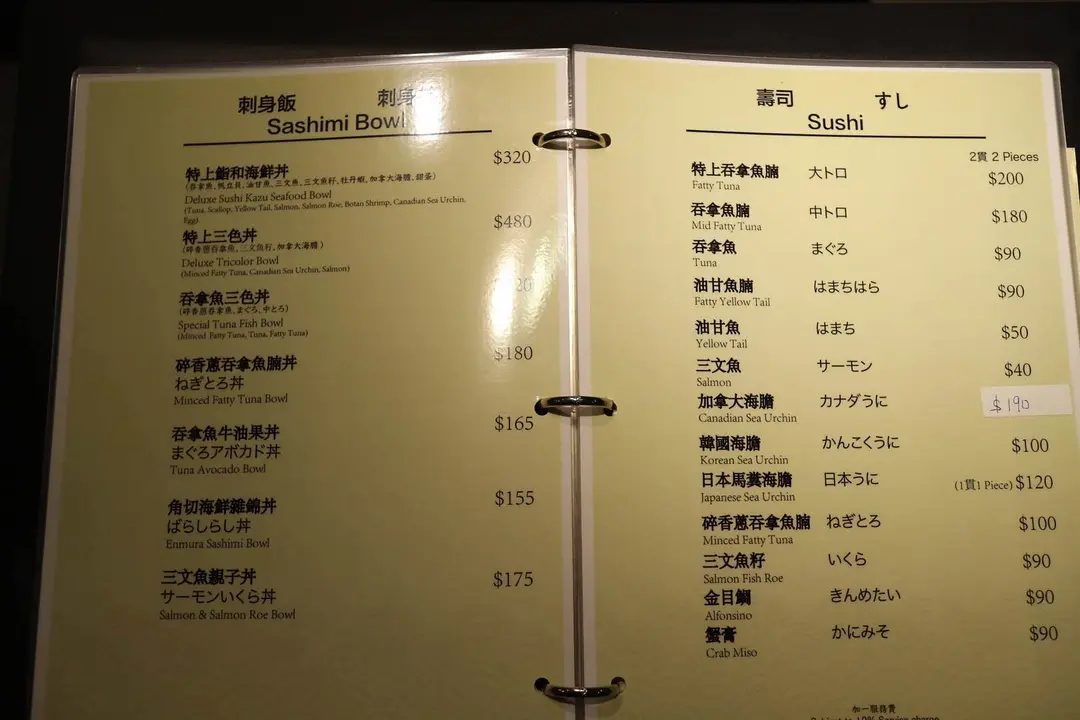 刺身飯 刺身
Sashimi Bowl
特上鮨和海鮮丼 $320
(吞拿魚, 帆立貝, 油甘魚, 三文魚, 三文魚籽, 牡丹蝦, 加拿大海膽, 甜蛋)
Deluxe Sushi Kazu Seafood Bowl
(Tuna, Scallop, Yellow Tail, Salmon, Salmon Roe, Botan Shrimp, Canadian Sea Urchin,
Egg)
特上三色丼 $480
(碎香蔥吞拿魚, 三文魚籽, 加拿大海膽)
Deluxe Tricolor Bowl
(Minced Fatty Tuna, Canadian Sea Urchin, Salmon)
吞拿魚三色丼
(碎香蔥吞拿魚, まぐろ, 中とろ)
Special Tuna Fish Bowl
(Minced Fatty Tuna, Tuna, Fatty Tuna)
碎香蔥吞拿魚腩丼 $180
ねぎとろ丼
Minced Fatty Tuna Bowl
吞拿魚牛油果丼 $165
まぐろアボカド丼
Tuna Avocado Bowl
角切海鮮雜錦丼 $155
ばらしらし丼
Enmura Sashimi Bowl
三文魚親子丼 $175
サーモンいくら丼
Salmon & Salmon Roe Bowl
壽司 すし
Sushi
2貫 2 Pieces
特上吞拿魚腩 大トロ $200
Fatty Tuna
吞拿魚腩 中トロ $180
Mid Fatty Tuna
吞拿魚 まぐろ $90
Tuna
油甘魚腩 はまちはら $90
Fatty Yellow Tail
油甘魚 はまち $50
Yellow Tail
三文魚 サーモン $40
Salmon
加拿大海膽 カナダうに $190
Canadian Sea Urchin
韓國海膽 かんこくうに $100
Korean Sea Urchin
日本馬糞海膽 日本うに (1貫1 Piece) $120
Japanese Sea Urchin
碎香蔥吞拿魚腩 ねぎとろ $100
Minced Fatty Tuna
三文魚籽 いくら $90
Salmon Fish Roe
金目鯛 きんめたい $90
Alfonsino
蟹膏 かにみそ $90
Crab Miso
加一服務費
Subject to 10% Service charge